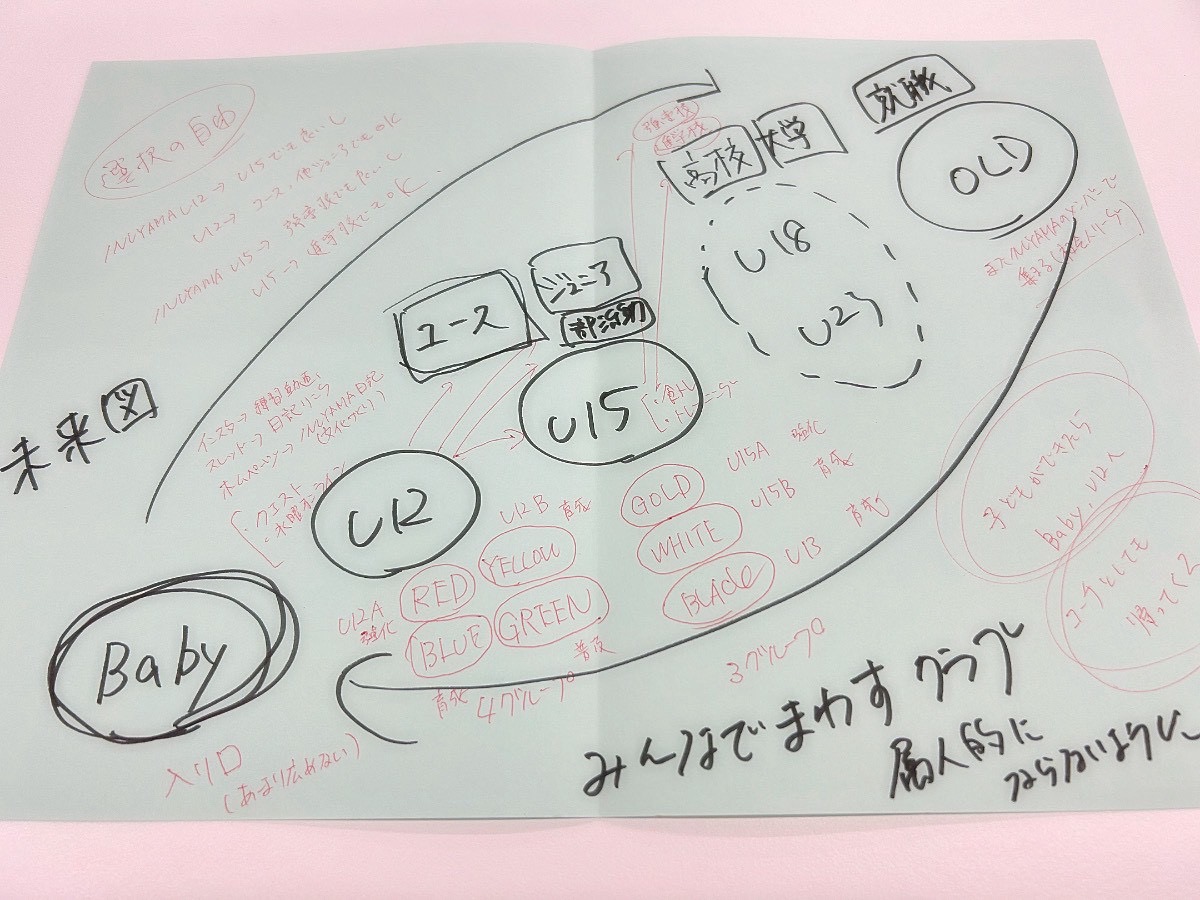 選択の自由
INUYAMA U12→ U15でも良いし
U12→ ユース、他ジュニアでもOK
INUYAMA U15→ 強豪校でも良いし
U15→ 進学校でもOK
未来図
強豪校
進学校
高校
大学
就職
OLD
U18
U23
元INUYAMAのメンバーで
集まる
ユース
ジュニア
部活動
U15
・食トレ
・トレーニング
インスタ→ 練習動画
スレッド→ 日記
ホームページ→ INUYAMA日記
(文化づくり)
・クエスト
・水曜オンライン
U12
U12B 育成
YELLOW
U12A
強化
RED
BLUE
GREEN
育成
普及
4グループ
GOLD
U15A 強化
WHITE
U15B 育成
U13 育成
3グループ
Baby
入り口
(あまり広めない)
子どもができたら
Baby、U12へ
コーチとしても
帰ってくる
みんなでまわすクラブ
属人的に
ならないように